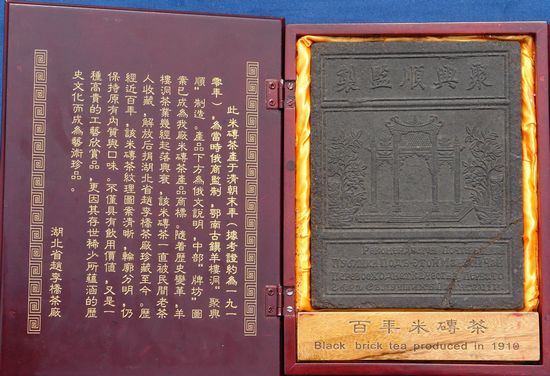 此米磚茶產于清朝末年（據考證約為一九一
零年），為當時俄商監制，鄂南古鎮羊樓洞“聚興
順”制造，產品下方為俄文說明，中部“牌坊”圖
案已成為我廠米磚茶產品商標。隨着歷史變革，羊
樓洞茶葉幾經起落興衰，該米磚茶一直被民間老茶
人收藏，解放后捐湖北省趙李橋茶廠珍藏至今。歷
經近百年，該米磚茶紋理圖案清晰，輪廓分明，仍
保持原有內質與口味。不僅具有飲用價值，又是一
種高貴的工藝欣賞品，更因其存世稀少所蘊涵的歷
史文化而成為藝術珍品。
湖北省趙李橋茶廠
聚興順監製
百年米磚茶
Black brick tea produced in 1910